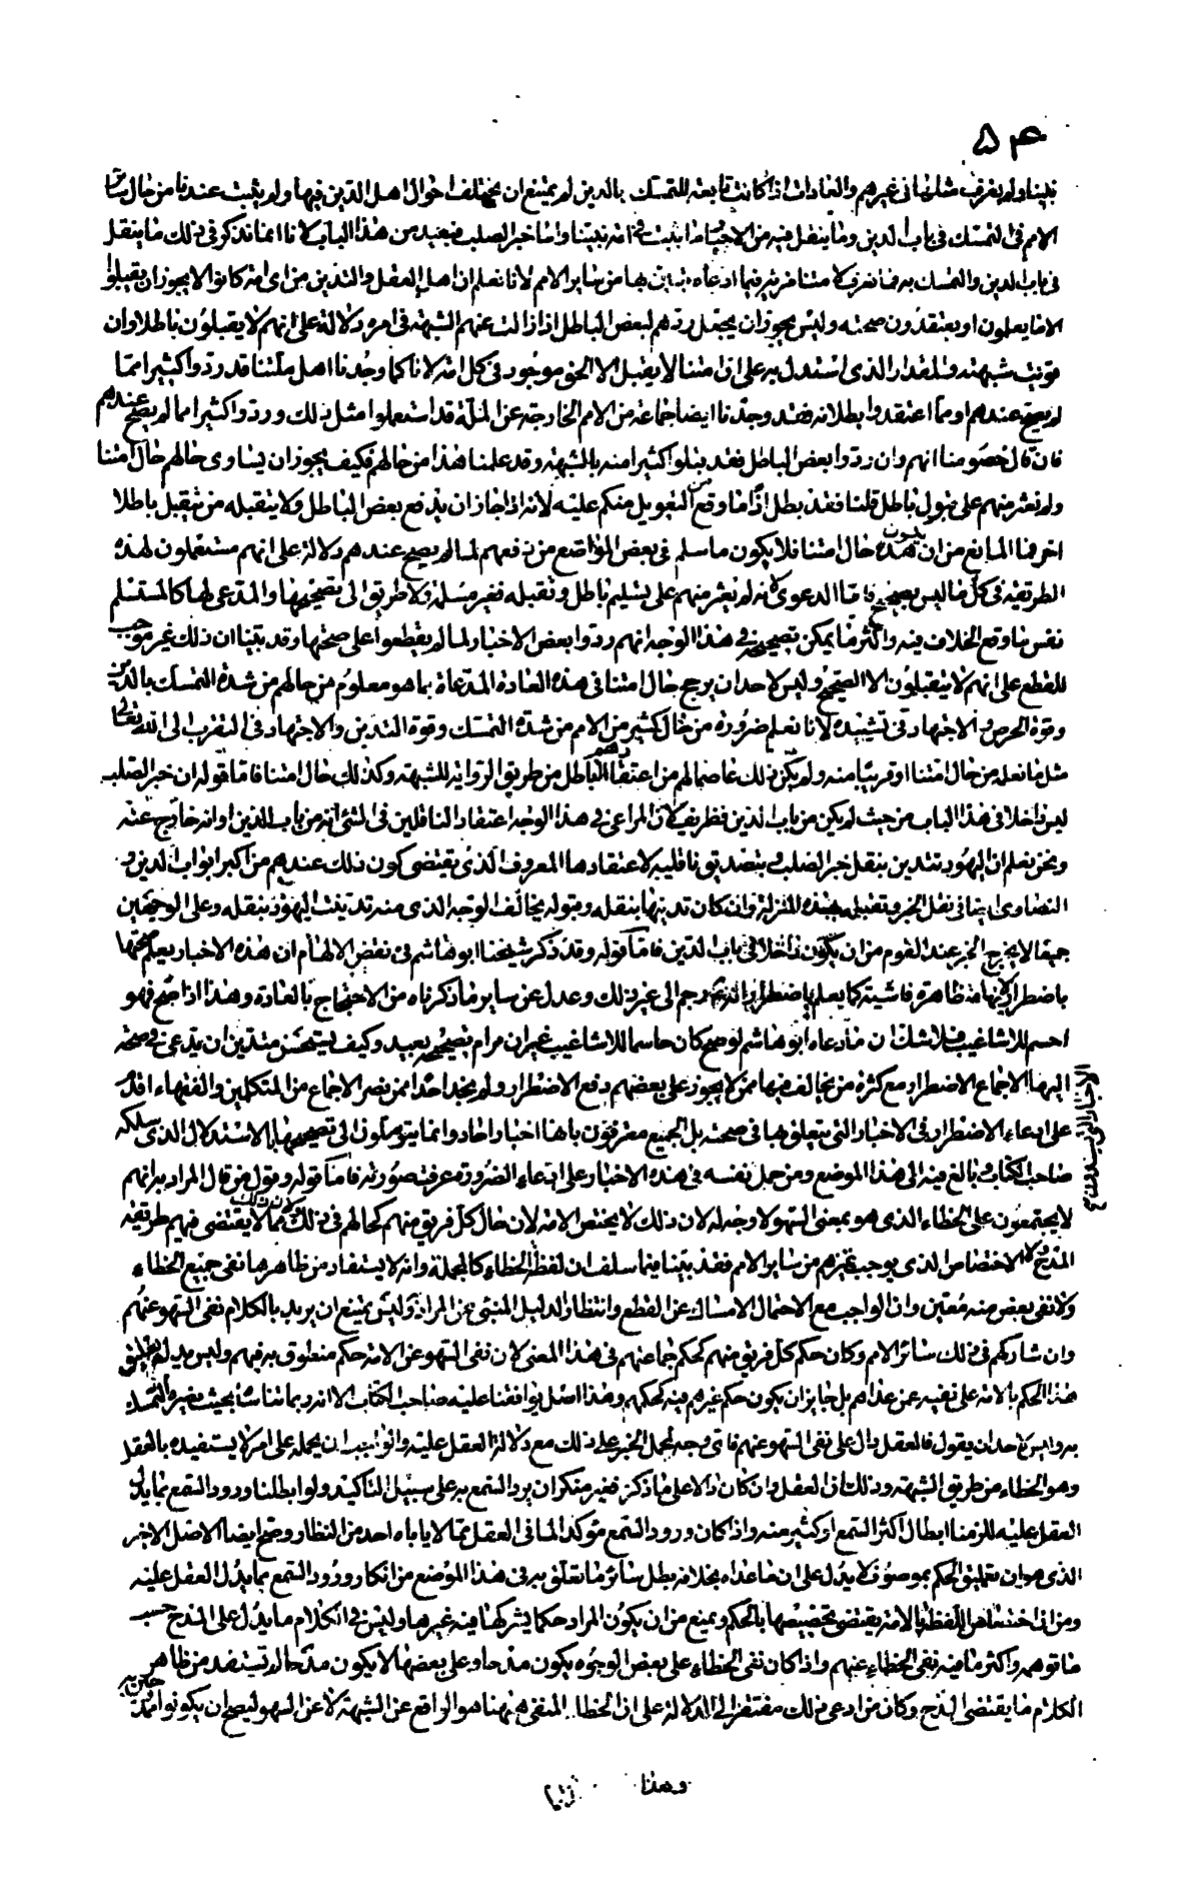 نبينا ولم يعرف مثلها في غيرهم والعادات اذا كانت تابعة للتمسك بالدين لم يمتنع ان يختلف احوال اهل الدين فيها ولم يثبت عندنا من حال سائر
الامم في التمسك في باب الدين وما ينقل فيه من الاخبار ما ثبت في امة نبينا واما خبر الصلب فبعيد من هذا الباب لانا انما نذكر في ذلك ما ينقل
في باب الدين والتمسك به
الا ما يعلمون او يعتقدون صحته وليس يجوز ان يجعل ردهم لبعض الباطل اذا زالت عنهم الشبهة في امره دلالة على انهم لا يقبلون باطلا وان
قويت شبهته فالمقدار الذي استدل به على ان امتنا لا يقبل الا الحق موجود في كل امة لانا كما وجدنا اهل ملتنا قد ردوا كثيرا مما
لم يصح عندهم او مما اعتقدوا بطلانه فقد وجدنا ايضا جماعة من الامم الخارجة عن الملة قد استعملوا مثل ذلك وردوا كثيرا مما لم يصح عندهم
فان قال خصومنا انهم وان ردوا بعض الباطل فقد قبلوا كثيرا منه بالشبهة وقد علمنا هذا من حالهم فكيف يجوز ان يساوى حالهم حال امتنا
ولم نعثر منهم على قبول باطل قلنا فقد بطل اذا ما وقع التعويل منكم عليه لانه اذا جاز ان يدفع بعض الباطل ولا يتقبله من يتقبل باطلا
اخر فما المانع من ان يكون هذه حال امتنا فلا يكون ما سلم في بعض المواضع من دفعهم لما لم يصح عندهم دلالة على انهم مستعملون لهذه
الطريقة في كل ما ليس بصحيح فاما الدعوى لانه لم نعثر منهم على تسليم باطل وتقبله فغير مسلمة ولا طريق الى تصحيحها والمدعى لها كالمستسلم
نفس ما وقع الخلاف فيه واكثر ما يمكن تصحيحه في هذا الوجه انهم ردوا بعض الاخبار لما لم يقطعوا على صحتها وقد بينا ان ذلك غير موجب
للقطع على انهم لا يتقبلون الا الصحيح وليس لاحد ان يرجح حال امتنا في هذه العادة المدعاة بما هو معلوم من حالهم من شدة التمسك بالدين
وقوة الحرص والاجتهاد في تشييده لانا نعلم ضرورة من حال كثير من الامم من شدة التمسك وقوة التدين والاجتهاد في التقرب الى الله تعالى
مثل ما نعلمه من حال امتنا او قريبا منه ولم يكن ذلك عاصما لهم من اعتقادهم الباطل من طريق الرواية للشبهة وكذلك حال امتنا فاما قوله ان خبر الصلب
ليس داخلا في هذا الباب من حيث لم يكن من باب الدين فظريف لان المراعى في هذا الوجه اعتقاد الناقلين في الشيء انه من باب الدين او انه خارج عنه
ونحن نعلم ان اليهود تتدين بنقل خبر الصلب وبتصديق ناقليه لاعتقادها المعروف الذي يقتضى كون ذلك عندهم من اكبر ابواب الدين و
النصارى ايضا في نقل الخبر وتقبله بهذه المنزلة وان كان تدينها بنقله وقبوله يخالف الوجه الذي منه تدينت اليهود بنقله وعلى الوجهين
جميعا لا يخرج الخبر عند القوم من ان يكون داخلا في باب الدين فاما قوله وقد ذكر شيخنا ابو هاشم في نقض الالهام ان هذه الاخبار يعلم صحتها
باضطرار لانها ظاهرة فاشية كما يعلم باضطرار والرجم الى غير ذلك وعدل عن ساير ما ذكرناه من الاحتجاج بالعادة وهذا اذا صح فهو
احسم للاشاغيب فلا شك ان ما ادعاه ابو هاشم لو صح كان حاسما للاشاغيب غير ان مرام تصحيحه بعيد وكيف يستحسن متدين ان يدعى في صحة
الاخبار التي يسندون
اليها الاجماع الاضطرار مع كثرة من يخالف فيها ممن لا يجوز على بعضهم دفع الاضطرار ولم نجد احدا ممن نصر الاجماع من المتكلمين والفقهاء اقدم
على ادعاء الاضطرار في الاخبار التي يتعلق بها في صحته بل الجميع معترفون بانها اخبار احاد وانما يتوصلون الى تصحيحها بالاستدلال الذي سلكه
صاحب الكتاب وبالغ فيه الى هذا الموضع ومن حمل نفسه في هذه الاخبار على ادعاء الضرورة عرفت صورته فاما قوله وقول من قال المراد به انهم
لا يجتمعون على الخطاء الذي هو بمعنى السهو لا وجه له لان ذلك لا يختص الامة لان حال كل فريق منهم كحالهم في ذلك ولان ذلك مما لا يقتضى فيهم طريقة
المدح ولا الاختصاص الذي يوجب تميزهم من ساير الامم فقد بينا فيما سلف ان لفظة الخطاء كالمجملة وانه لا يستفاد من ظاهرها نفى جميع الخطاء
ولا نفى بعض منه معين وان الواجب مع الاحتمال الامساك عن القطع وانتظار الدليل المنبئ عن المراد وليس يمتنع ان يريد بالكلام نفى السهو عنهم
وان شاركهم في ذلك سائر الامم وكان حكم كل فريق منهم كحكم جماعتهم في هذا المعنى لان نفى السهو عن الامة حكم منطوق به فيهم وليس يدل تعليق
هذا الحكم بالامة على نفيه عمن عداهم بل جايز ان يكون حكم غيرهم فيه كحكمهم وهذا اصل يوافقنا عليه صاحب الكتاب الا انه ربما تناساه بحيث يضره التمسك
به وليس لاحد ان يقول فالعقل دال على نفى السهو عنهم فاى وجه لحمل الخبر على ذلك مع دلالة العقل عليه والواجب ان يحمله على امر لا يستفيده بالعقل
وهو الخطاء من طريق الشبهة وذلك ان العقل وان كان دالا على ما ذكر فغير منكر ان يرد السمع به على سبيل التاكيد ولو ابطلنا ورود السمع بما يدل
العقل عليه للزمنا ابطال اكثر السمع او كثير منه واذا كان ورود السمع مؤكدا لما في العقل مما لا يأباه احد من النظار وصح ايضا الاصل الاخر
الذي هو ان تعليق الحكم بموصوف لا يدل على ان ما عداه بخلافه بطل سائر ما تعلق به في هذا الموضع من انكار ورود السمع بما يدل العقل عليه
ومن ان اختصاص اللفظ بالامة يقتضى تخصيصها بالحكم ويمنع من ان يكون المراد حكما يشركها فيه غيرها وليس في الكلام ما يدل على المدح حسب
ما توهمه واكثر ما فيه نفى الخطاء عنهم واذا كان نفى الخطاء على بعض الوجوه يكون مدحا وعلى بعضها لا يكون مدحا لم تستفد من ظاهر
الكلام ما يقتضى المدح وكان من ادعى ذلك مفتقرا الى الدلالة على ان الخطا المنفى ههنا هو الواقع عن الشبهة لا عن السهو ليصح ان يكونوا ممدوحين به
وهذا